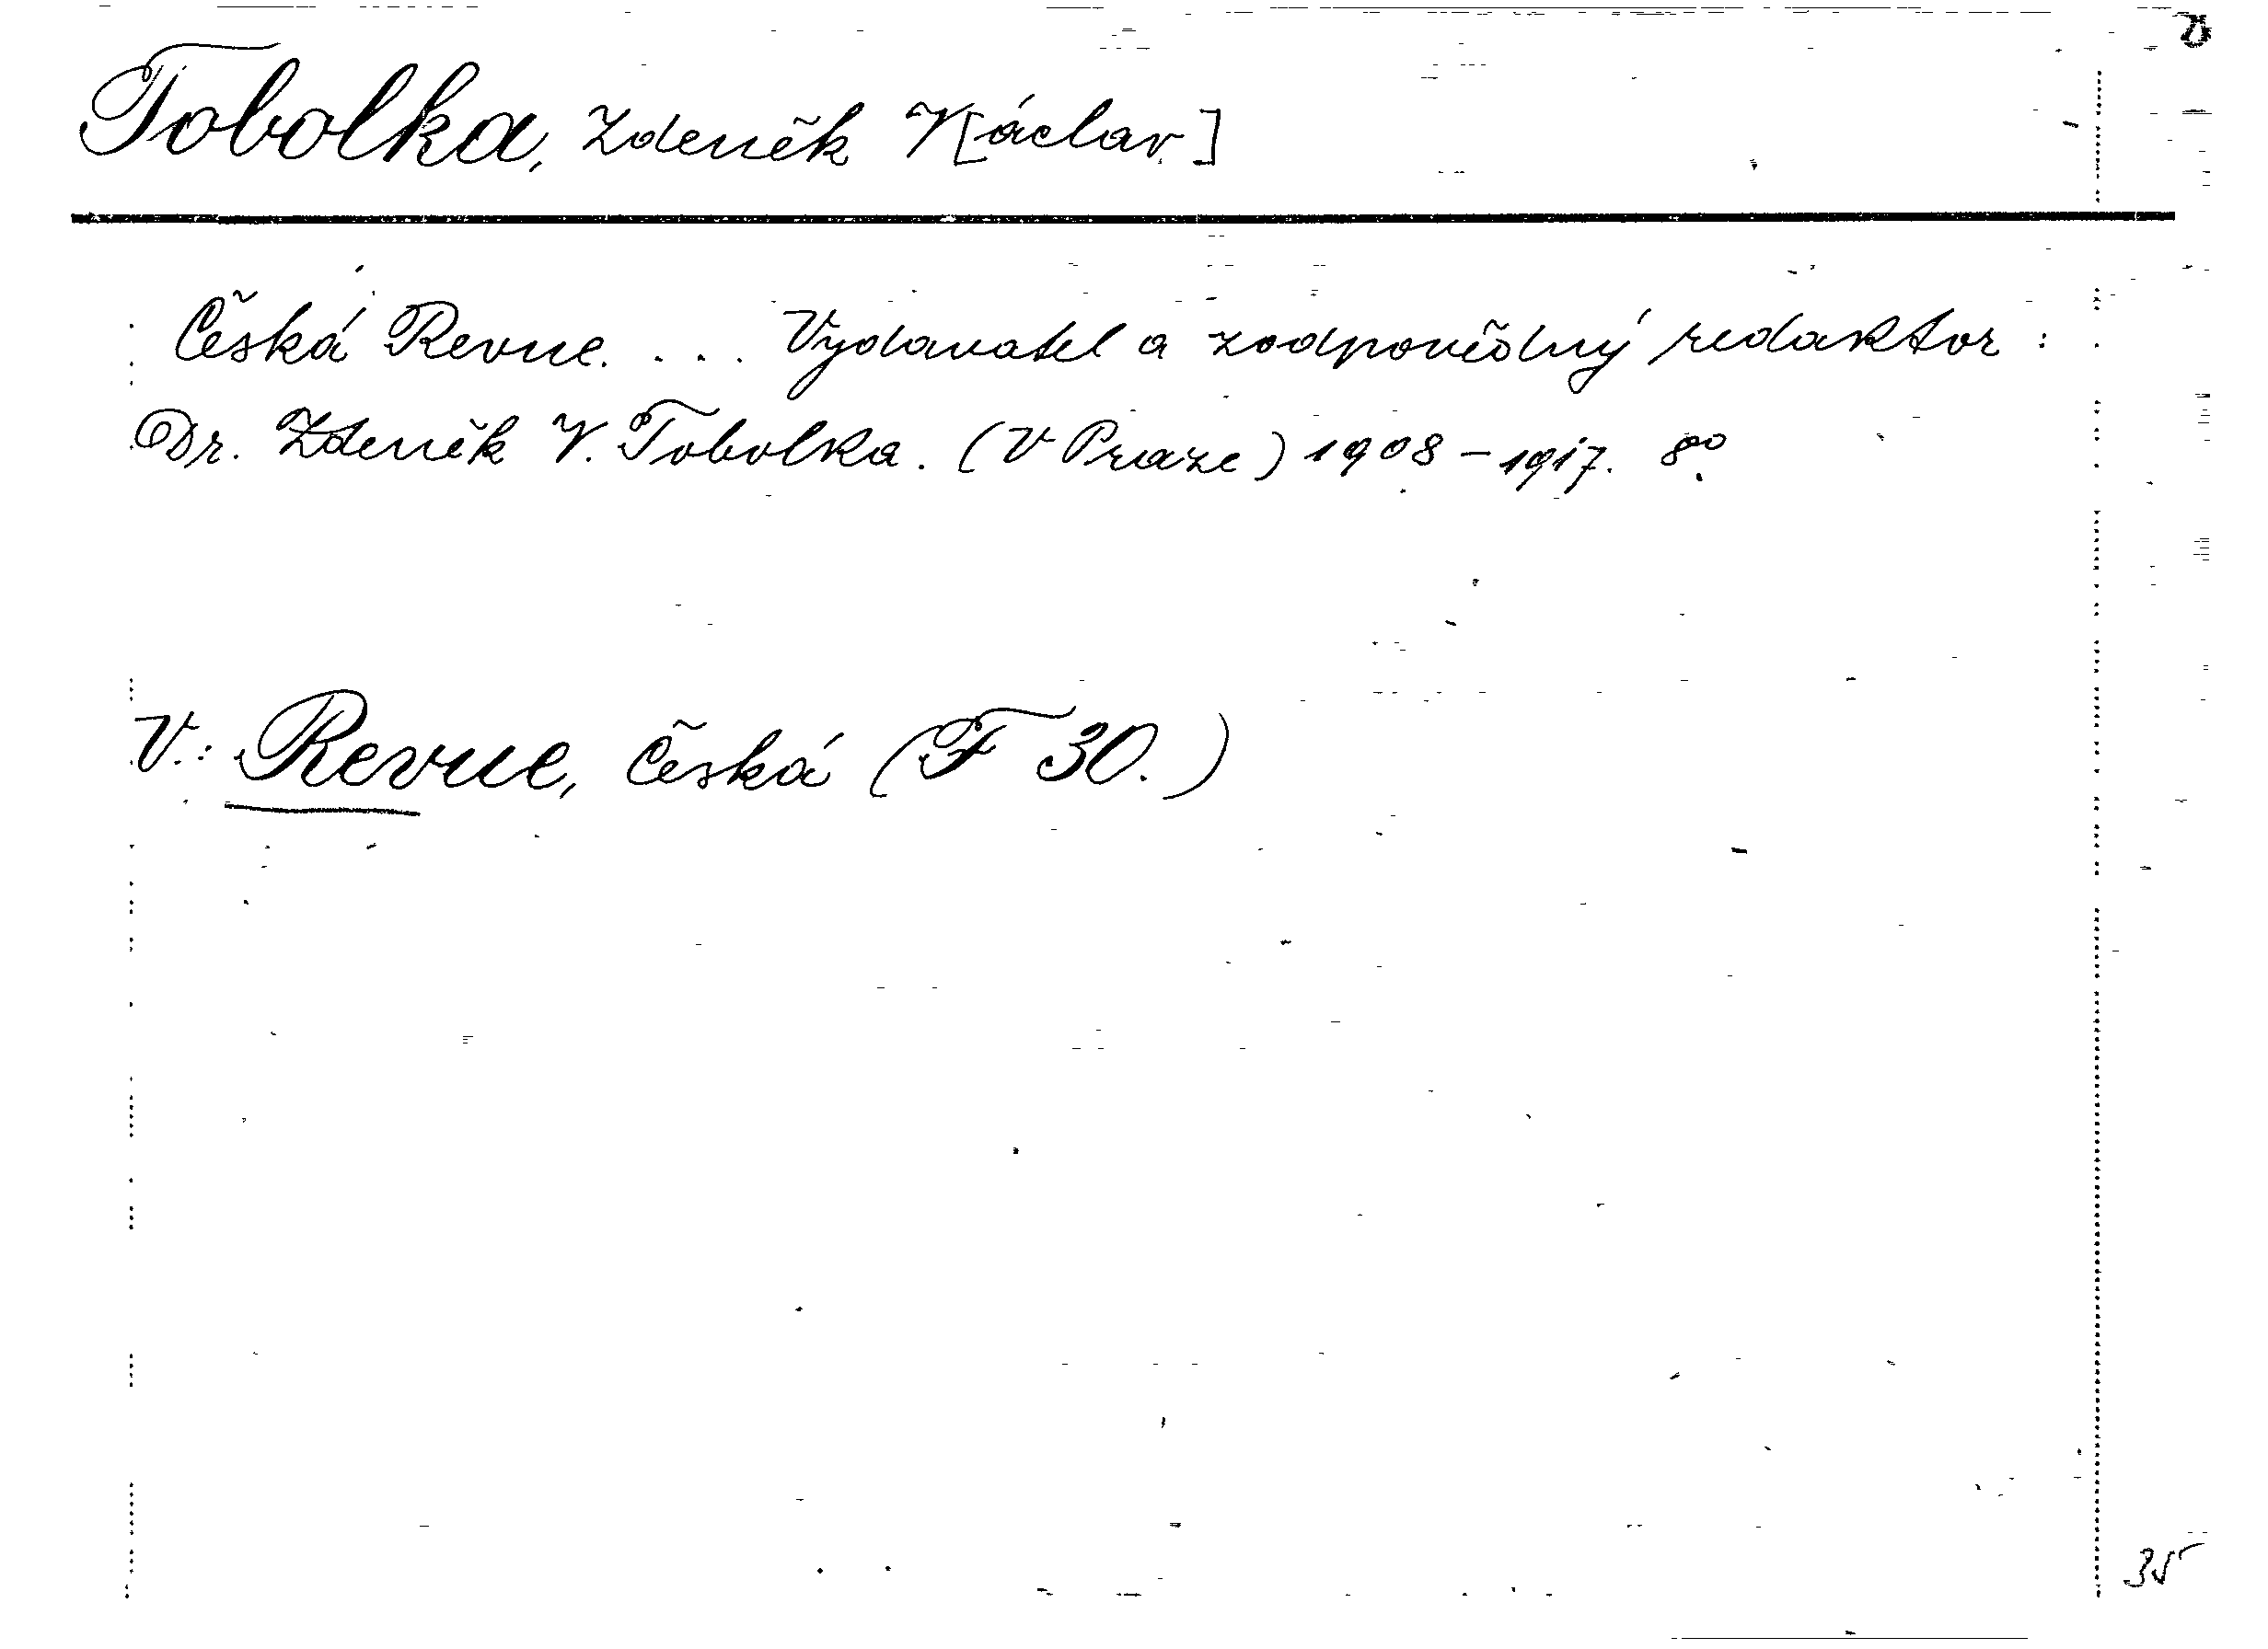 Tobolka, Zdeněk V[áclav]
Česká Revue. ... Vydavatel a zodpovědný redaktor:
Dr. Zdeněk V. Tobolka. (V Praze) 1908-1917. 8°.
V.: Revue, Česká (F 30.)
35